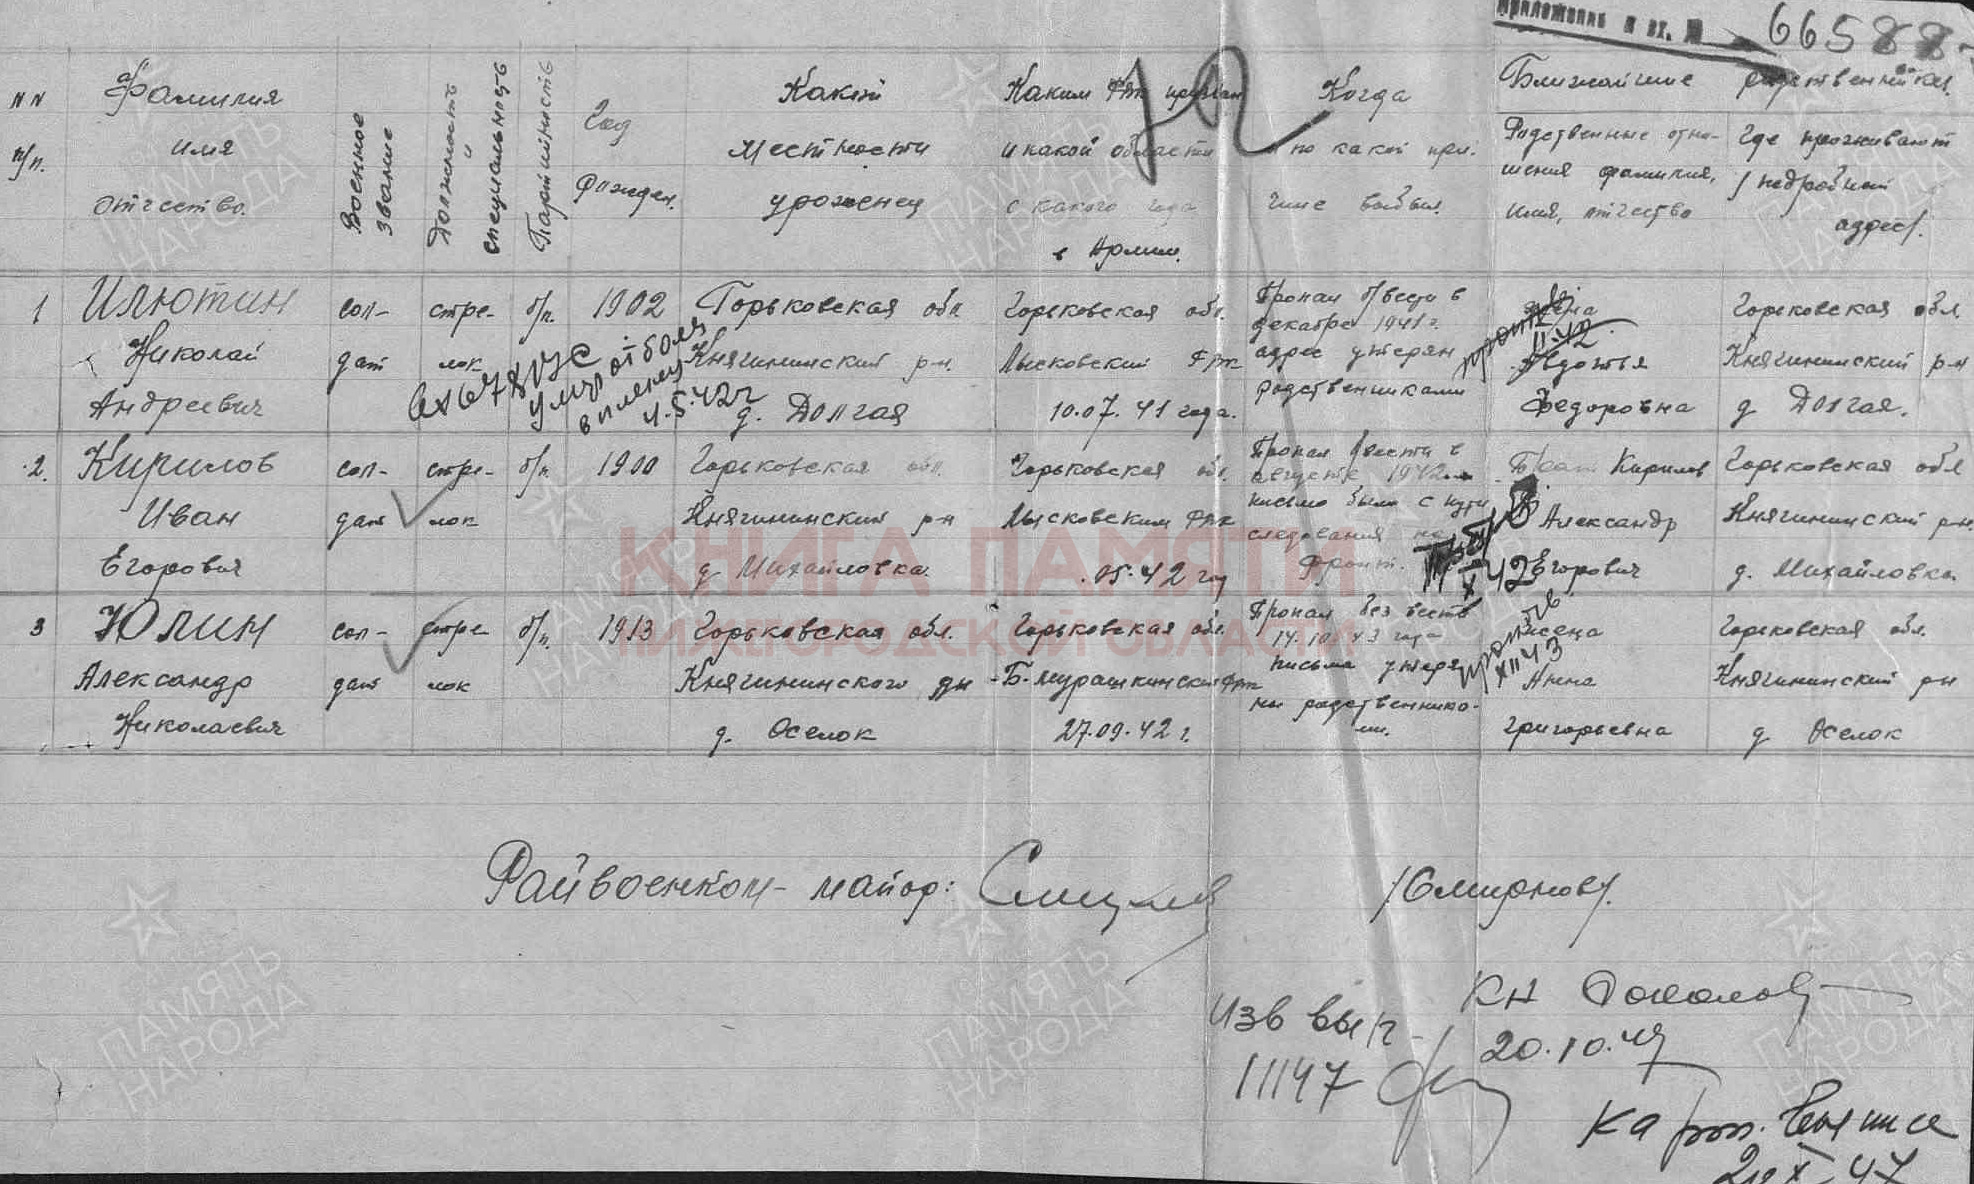 приложение к вх. № 66588
NN п/п.
Фамилия имя отчество.
Военное звание
Должность и специальность
Партийность
Год рожден.
Какой местности уроженец
Каким РВК призван и какой области с какого года в Армии.
Когда и по какой причине выбыл.
Ближайшие родственники
Родственные отношения фамилия, имя, отчество
Где проживают /подробный адрес/.
1 Илютин сол- стре- б/п. 1902 Горьковская обл. Горьковская обл. Пропал б/вести в жена Горьковская обл.
декабре 1941 г.
Николай дат лок Княгининский р-н. Лысковский РВК адрес утерян Авдотья Княгининский р-н
Андреевич д. Долгая 10.07.41 года. родственниками Федоровна д Долгая.
вх 67878с
умер от боля
в плену
4.5.42 г
против
II-42
2. Кирилов сол- стре- б/п 1900 Горьковская обл. Горьковская обл. Пропал б/вести в Брат Кирилов Горьковская обл
августе 1942
Иван дат лок Княгининский р-н Лысковским РВК письмо было с пути Александр Княгининский р-н.
следования на
Егорович д Михайловка. .05.42 год фронт. Егорович д. Михайловка
X 42
3 Юлин сол- стре- б/п. 1913 Горьковская обл. Горьковская обл. Пропал без вести жена Горьковская обл.
14.10.43 года
Александр дат лок Княгининского рн Б-Мурашкинский РВК письма утеря Анна Княгининский рн
Николаевич д. Оселок 27.09.42 г. ны родственника- Григорьевна д Оселок
ми.
против
XII 43
Райвоенком- майор: /Смирнов/.
Изв вып.
11147
КН Соколов
20.10.47
X 47
КНИГА ПАМЯТИ
НИЖЕГОРОДСКОЙ ОБЛАСТИ
ПАМЯТЬ
НАРОДА